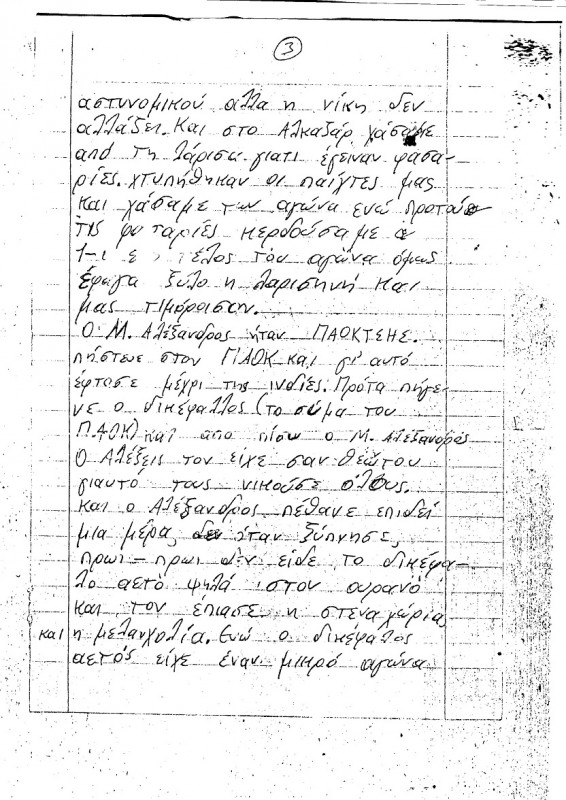 3
αστυνομικού αλλα η νίκη δεν
αλλάζει. Και στο Αλκαζάρ χάσαμε
από τη Λάρισα γιατι έγειναν φασα-
ρίες. χτυπήθηκαν οι παίχτες μας
και χάσαμε τον αγώνα ενώ προτού
τις φασαρίες κερδούσαμε
1-1 τέλος του αγώνα όμως
έφαγα ξύλο η λαρισηνή και
μας τιμόρισαν.
Ο Μ. Αλέξανδρος ήταν ΠΑΟΚΤΣΗΣ.
πήστευε στον ΠΑΟΚ και γι' αυτό
έφτασε μέχρι της ινδίες. Πρότα πήγε-
νε ο δικέφαλλος (το σύμα του
ΠΑΟΚ) και απο πίσω ο Μ. Αλέξανδρος
Ο Αλέξεις τον είχε σαν θεώτου
γιαυτό τους νικούσε όλους.
και ο Αλέξανδρος πέθανε επιδεί
μια μέρα, όταν ξύπνησε,
πρωι-πρωι δεν είδε το δικέφα-
λο αετό ψηλά στον ουρανό
και τον έπιασε η στεναχώρια
και η μελανχολία. Ενώ ο δικέφαλος
αετός είχε έναν μικρό αγώνα